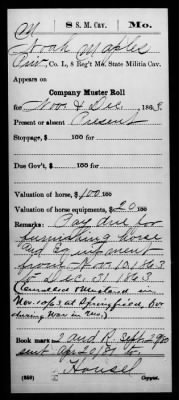 M | 8 S. M. Cav. | Mo.
Noah Maples
Priv., Co. L, 8 Reg't Mo. State Militia Cav.
Appears on
Company Muster Roll
for Nov. & Dec., 1863.
Present or absent Present
Stoppage, $ 100 for
Due Gov't, $ 100 for
Valuation of horse, $ 100 100
Valuation of horse equipments, $ 20 100
Remarks: Pay due for
furnishing horse
and Equipment
from Nov 10, 1863
to Dec. 31 1863
in
Nov. 10/63 at Springfield,
during War in Mo.)
Book mark: 2 and R, Sept 2
sent Apr 20/81 to.
Housel
(859) Copyist.